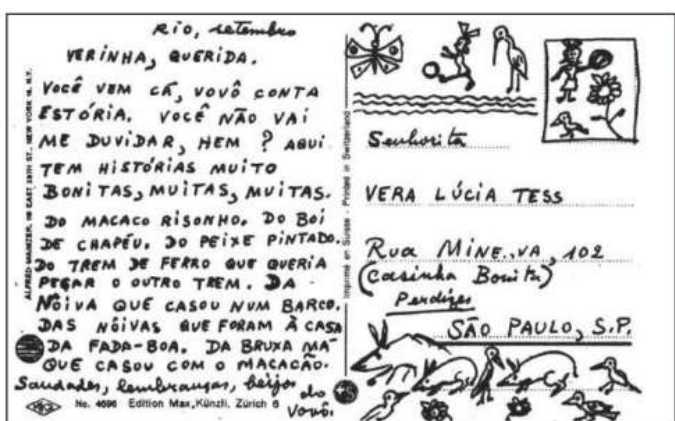 Rio, setembro
VERINHA, QUERIDA.
VOCÊ VEM CÁ, VOVÔ CONTA
ESTÓRIA. VOCÊ NÃO VAI
ME DUVIDAR, HEM ? AQUI
TEM HISTÓRIAS MUITO
BONITAS, MUITAS, MUITAS.
DO MACACO RISONHO. DO BOI
DE CHAPÉU. DO PEIXE PINTADO.
DO TREM DE FERRO QUE QUERIA
PEGAR O OUTRO TREM. DA
NÔIVA QUE CASOU NUM BARCO.
DAS NÔIVAS QUE FORAM À CASA
DA FADA-BOA. DA BRUXA MÁ
QUE CASOU COM O MACACÃO.
Saudades, lembranças, beijos do
Vovô.
No. 4696 Edition Max Künzli, Zürich 6
Imprimé en Suisse - Printed in Switzerland
Senhorita
VERA LÚCIA TESS
Rua MINE..VA, 102
(Casinha Bonita)
Perdizes
SÃO PAULO, S.P.